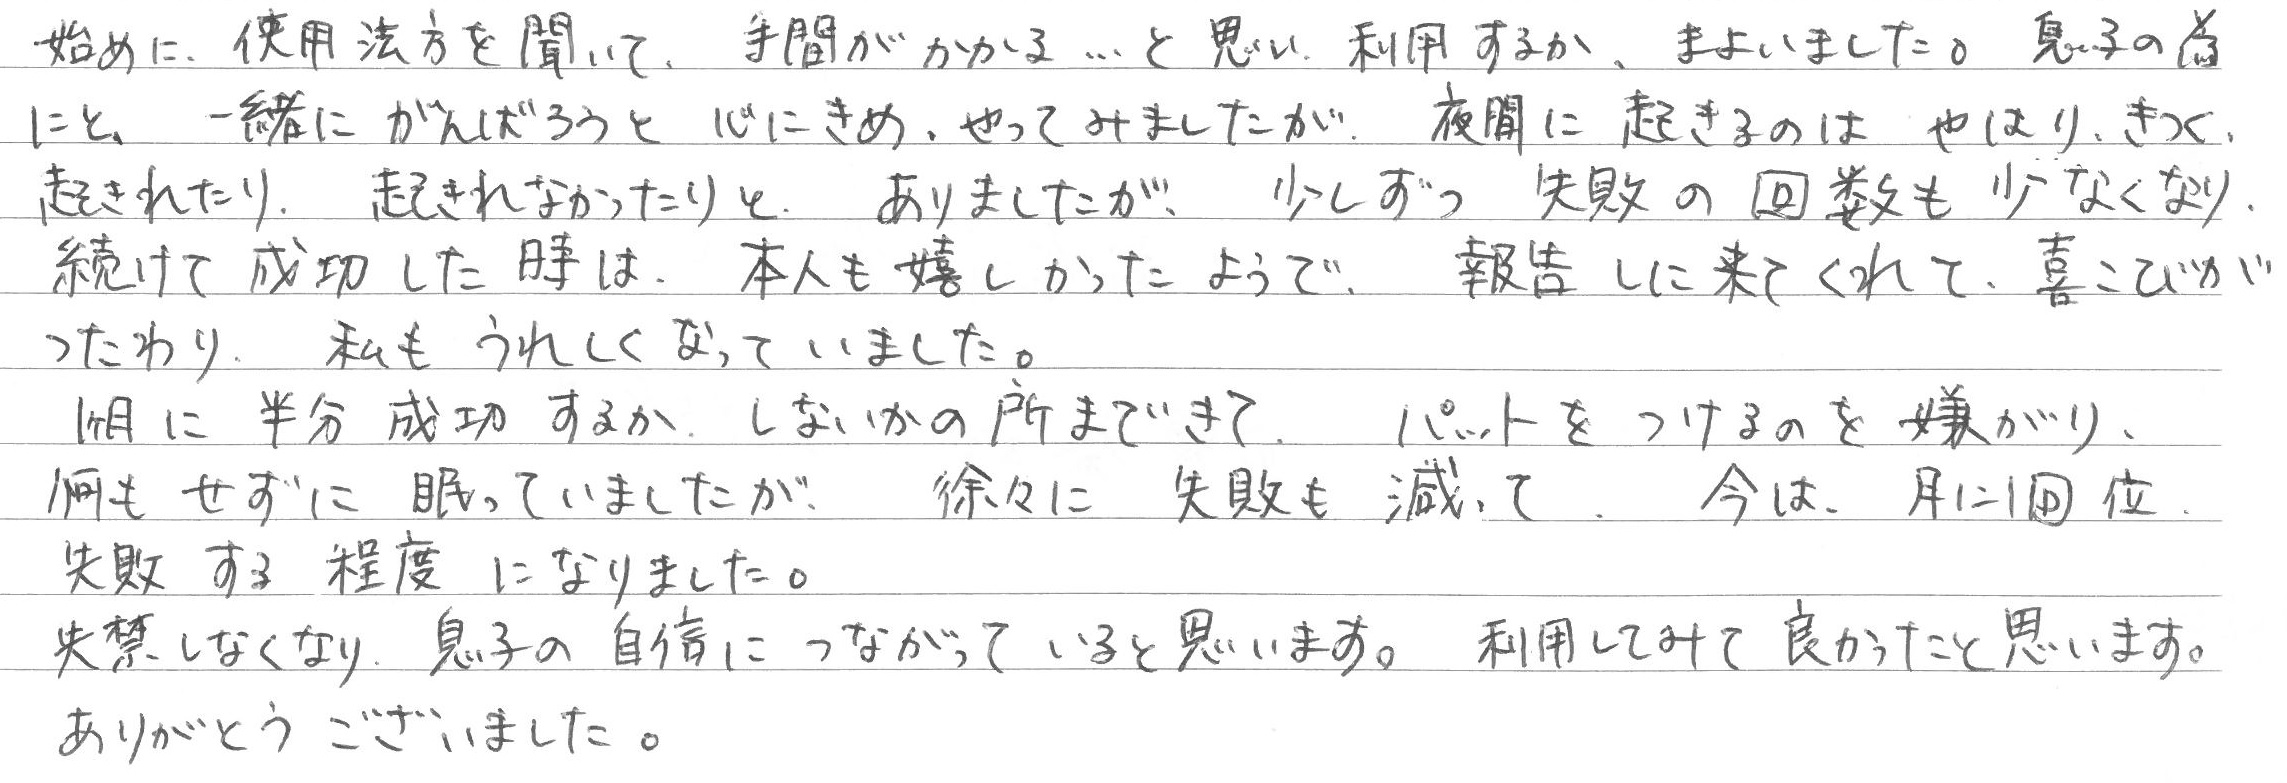 始めに、使用法方を聞いて、手間がかかる…と思い、利用するか、まよいました。息子の為
にと、一緒にがんばろうと心にきめ、やってみましたが、夜間に起きるのはやはり、きつく、
起きれたり、起きれなかったりと、ありましたが、少しずつ失敗の回数も少なくなり、
続けて成功した時は、本人も嬉しかったようで、報告しに来てくれて、喜こびが
つたわり、私もうれしくなっていました。
1ヶ月に半分成功するか、しないかの所まできて、パットをつけるのを嫌がり、
何もせずに眠っていましたが、徐々に失敗も減って、今は、月に1回位、
失敗する程度になりました。
失禁しなくなり、息子の自信につながっていると思います。利用してみて良かったと思います。
ありがとうございました。